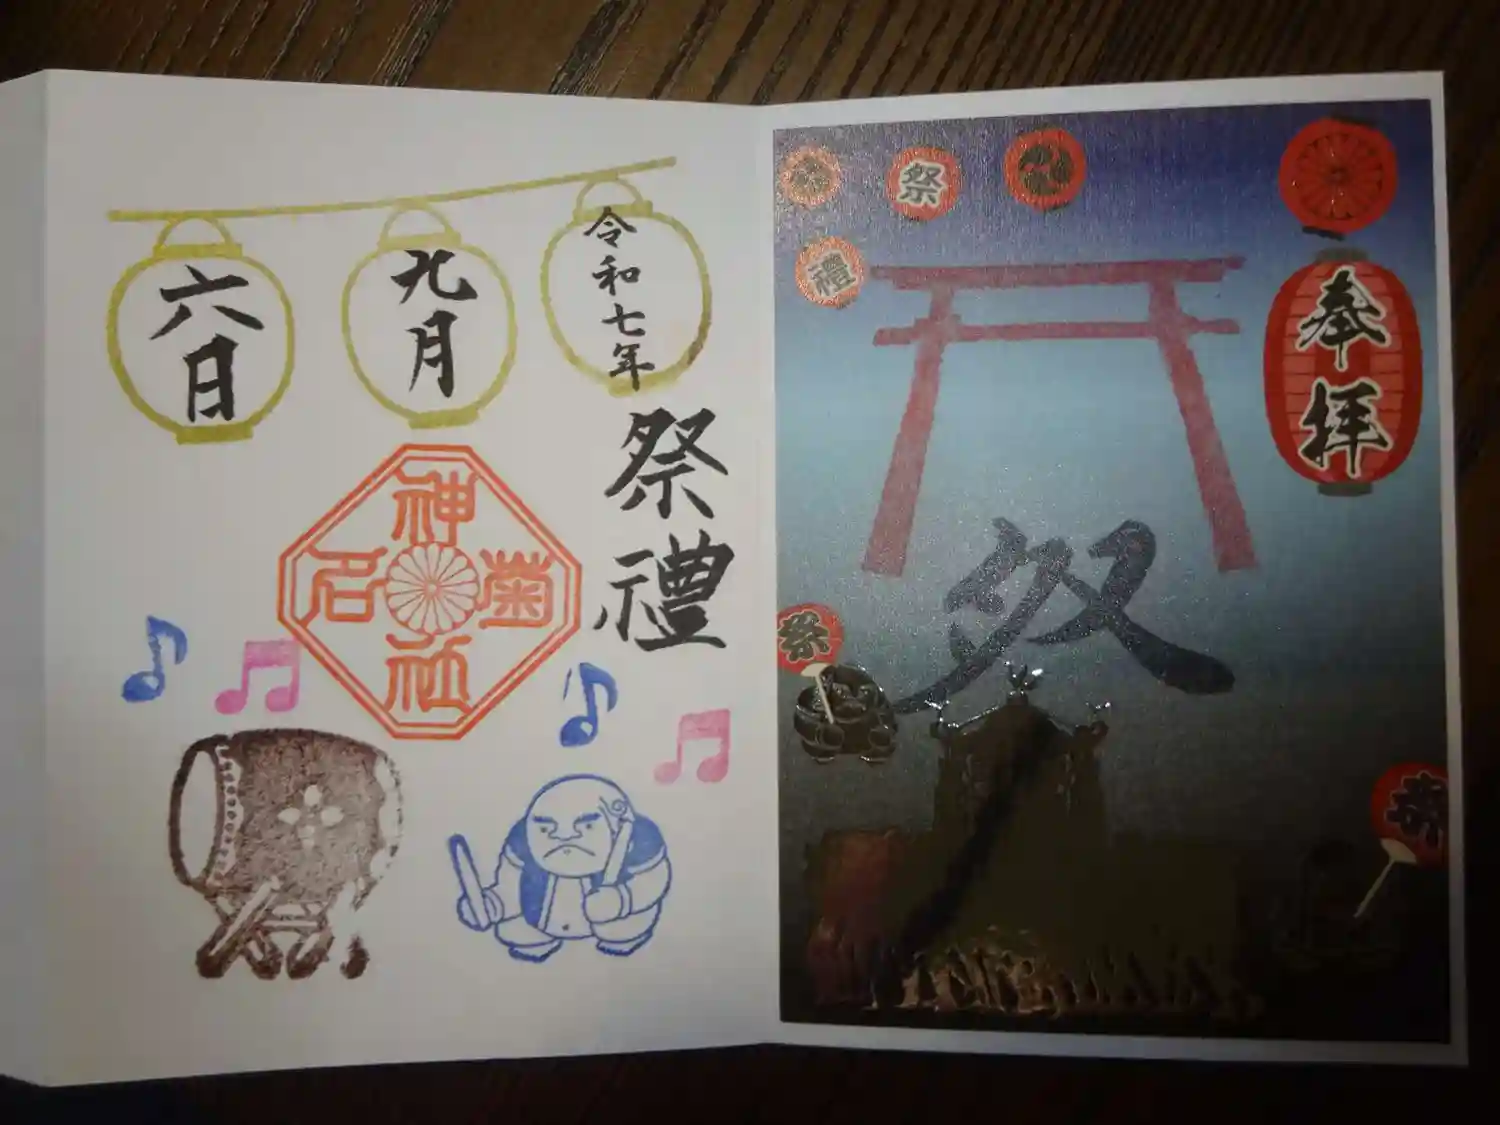 奉拝
祭
禮
祭
祭
令和七年
九月
六日
祭禮
菊名神社